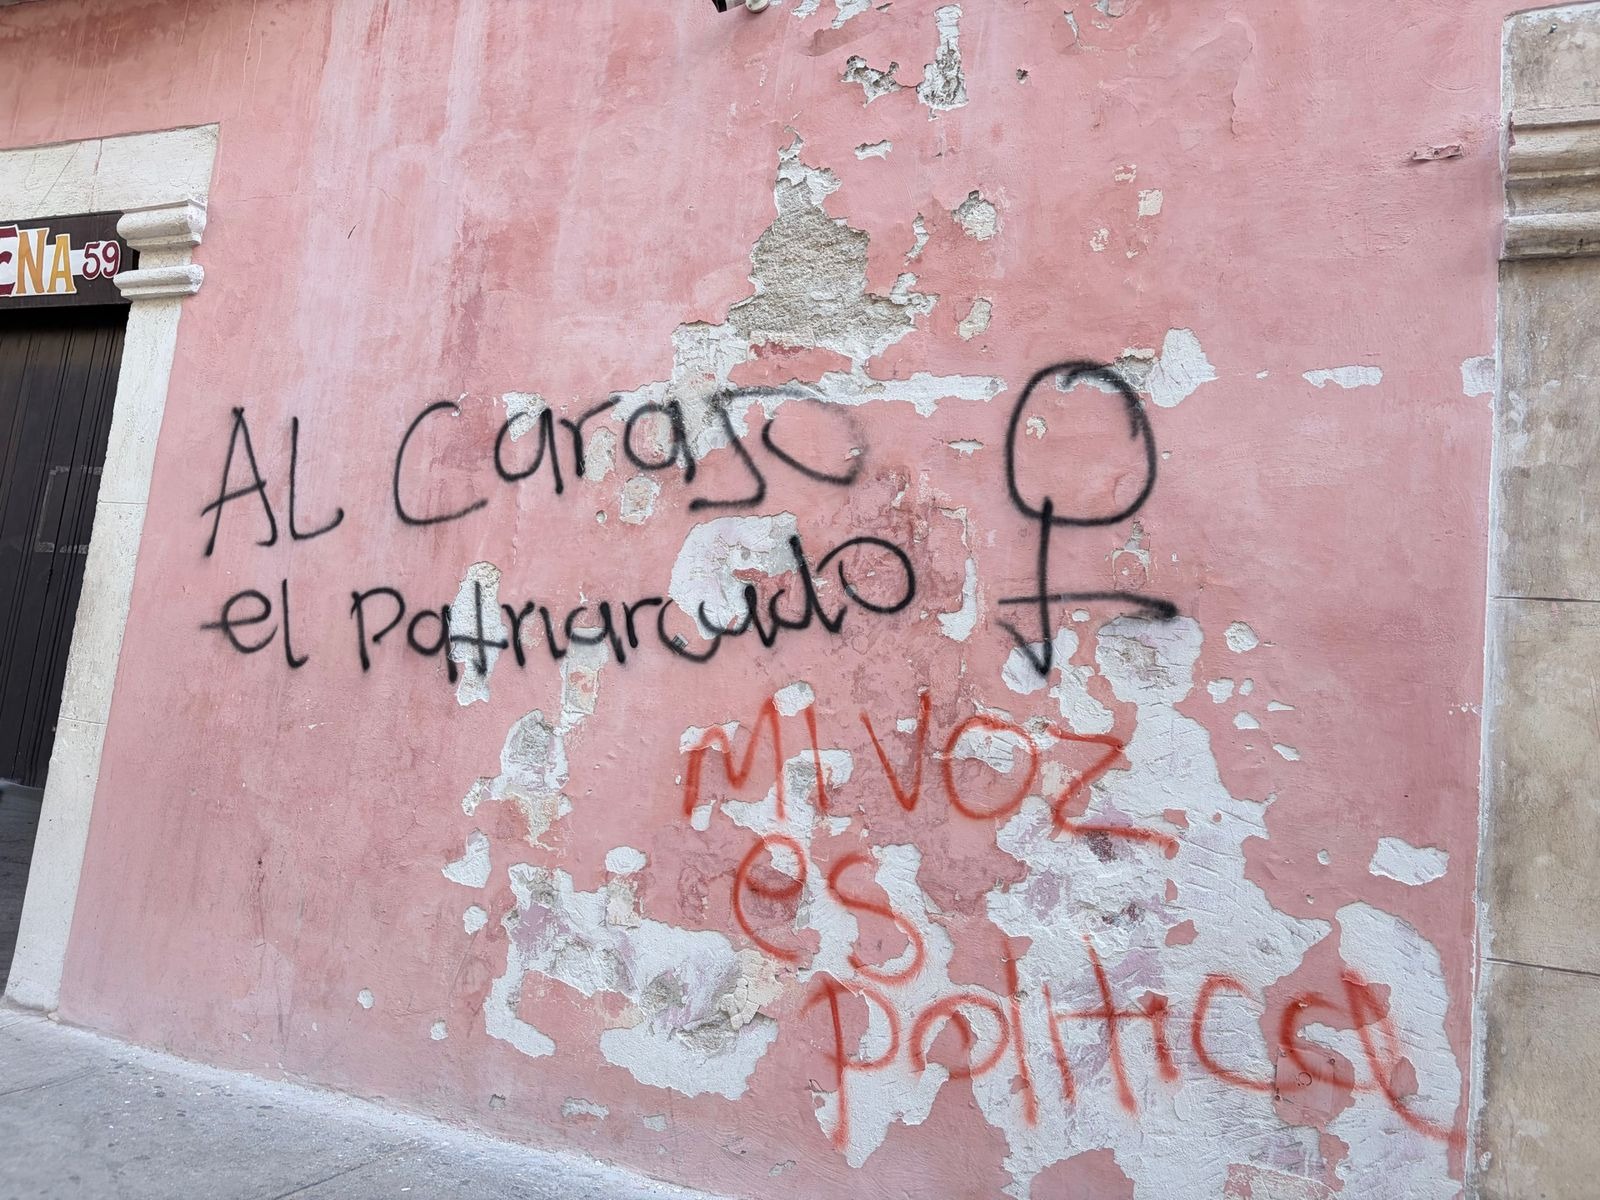 ENA 59
AL Carajo
el Patriarcado
MI VOZ
es
Política